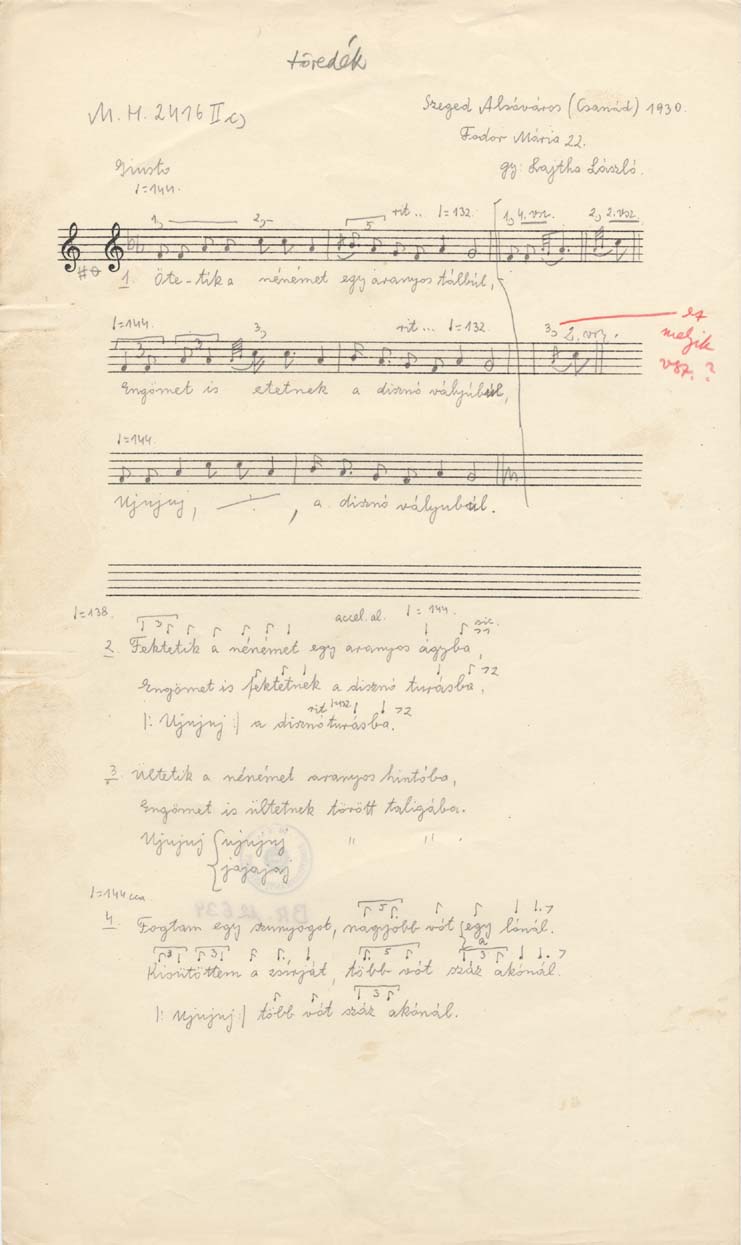 töredék
M. H. 2416 II c)
Szeged Alsóváros (Csanád) 1930.
Fodor Mária 22.
gy: Lajtha László.
Giusto
♩=144.
1, 2, 5 rit.. ♩=132. 1, 4. vsz. 2, 2. vsz.
1. Öte-tik a nénémet egy aranyos tálbúl,
♩=144. 3 3 3, rit... ♩=132. 3, 2. vsz.
ez
melyik
vsz. ?
Engömet is etetnek a disznó vályúbúl,
♩=144.
Ujujuj, —.— , a disznó vályubúl.
♩=138. 3 accel. al. ♩=144. sic
2. Fektetik a nénémet egy aranyos ágyba,
Engömet is fektetnek a disznó turásba,
rit ♩=132
|: Ujujuj :| a disznó turásba.
3. Ültetik a nénémet aranyos hintóba,
Engömet is ültetnek törött taligába.
Ujujuj { ujujuj " " .
{ jajajaj
BR. 12634
♩=144 cca. 5
4. Fogtam egy szunyogot, nagyobb vót { egy lónál.
{ a
3 3 5 3
Kisütöttem a zsírját, több vót száz akónál.
3
|: Ujujuj :| több vót száz akónál.